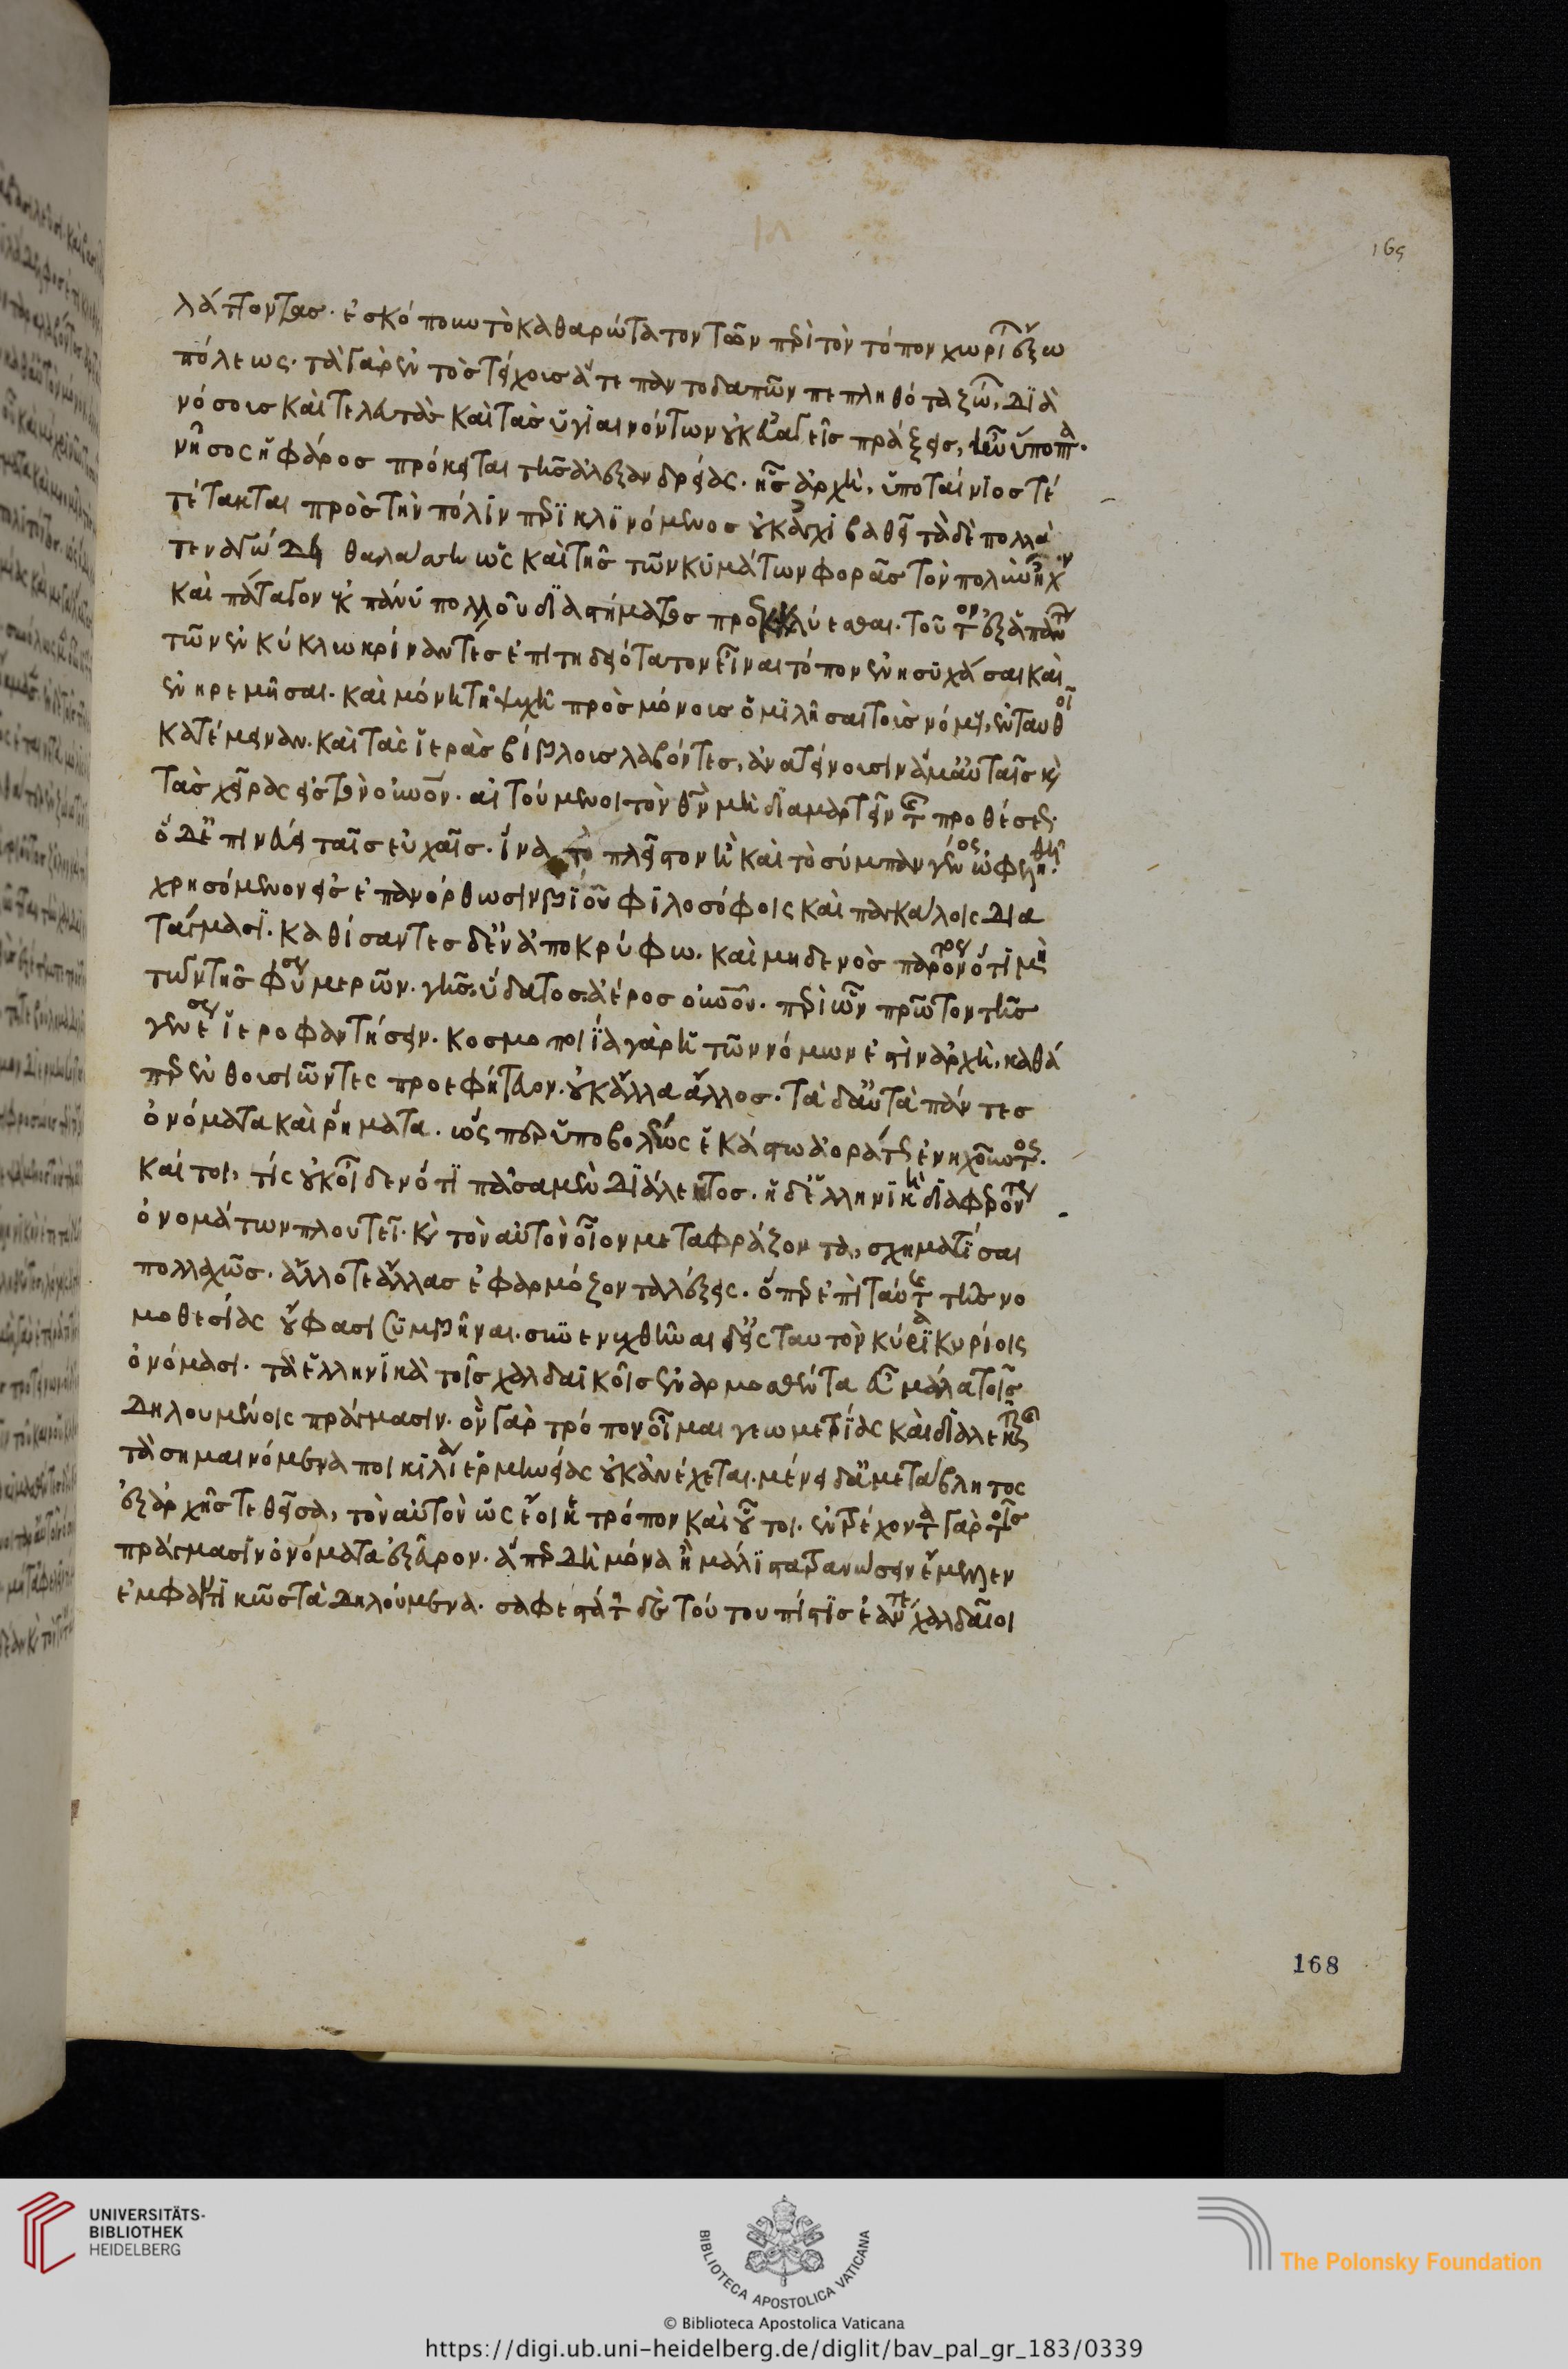 λάττοντας· ἐσκόπουν τὸ καθαρώτατον τῶν περὶ τὸν τόπον χωρί ἔξω
πόλεως· τὰ γὰρ ἐν τὸς τείχους ἅτε παντοδαπῶν πεπληθότα ζώ, διὰ
νόσους καὶ τελευτὰς καὶ τὰς ὑγιαινόντων οὐκ εὐαγεῖς πράξεις, ἦν ὕποπτα·
νῆσος ἡ φάρος πρόκειται τῆς ἀλεξανδρείας· ἧς ἀρχὴ, ὑποταίνιος τέ
τέτακται πρὸς τὴν πόλιν περὶ κλινόμενος οὐκ ἀγχιβαθεῖ τὰ δὲ πολλὰ
τεναγώδη θαλάσση ὡς καὶ τῆς τῶν κυμάτων φορᾶς τὸν πολὺν ἦχον
καὶ πάταγον ἐκ πάνυ πολλοῦ διαστήματος προεκλύεσθαι· τοῦτον ἐξ ἁπάν
τῶν ἐν κύκλω κρίναντες ἐπιτηδειότατον εἶναι τόπον ἐνησυχάσαι καὶ
ἐνηρεμῆσαι· καὶ μόνη τῆ ψυχῆ πρὸς μόνους ὁμιλῆσαι τοὺς νόμους, ἐνταυθοῖ
κατέμειναν· καὶ τὰς ἱερὰς βίβλους λαβόντες, ἀνατείνουσιν ἅμα αὐταῖς καὶ
τὰς χεῖρας εἰς τὸν οὐνον· αἰτούμενοι τὸν θν μὴ διαμαρτεῖν τῆς προθέσεως·
ὁ δ' ἐπινεύει ταῖς εὐχαῖς· ἵνα τὸ πλεῖστον ἢ καὶ τὸ σύμπαν γένος ὠφεληθῆ·
χρησόμενον εἰς ἐπανόρθωσιν βίου φιλοσόφοις καὶ παγκάλοις δια
τάγμασι· καθίσαντες δ' ἐν ἀποκρύφω· καὶ μηδενὸς παρόντος ὅτι μὴ
τῶν τῆς φύσεως μερῶν· γῆς, ὕδατος, ἀέρος οὐνου· περὶ ὧν πρῶτον τῆς
γενέσεως ἱεροφαντήσειν· κοσμοποιΐα γὰρ ἡ τῶν νόμων ἐστὶν ἀρχὴ, καθά
περ ἐνθουσιῶντες προεφήτευον· οὐκ ἄλλα ἄλλος· τὰ δ' αὐτὰ πάντες
ὀνόματα καὶ ῥήματα· ὥς περ ὑποβολέως ἑκάστω ἀοράτως ἐνηχοῦντος·
καίτοι, τίς οὐκ οἶδεν ὅτι πᾶσα μὲν διάλεκτος· ἡ δ' ἑλληνικὴ διαφερόντως
ὀνομάτων πλουτεῖ· καὶ τὸν αὐτὸν οἷον μεταφράζοντα, σχηματίσαι
πολλαχῶς· ἄλλοτε ἄλλας ἐφαρμόζοντα λέξεις· ὅπερ ἐπὶ ταύτης τῆς νο
μοθεσίας οὔ φασι συμβῆναι· συνενεχθῆναι δ' εἰς ταυτὸν κύρια κυρίοις
ὀνόμασι· τὰ ἑλληνικὰ τοῖς χαλδαϊκοῖς ἐναρμοσθέντα εὖ μάλα τοῖς
δηλουμένοις πράγμασιν· ὃν γὰρ τρόπον οἶμαι γεωμετρίας καὶ διαλεκτικῆς
τὰ σημαινόμενα ποικιλίαν ἑρμηνείας οὐκ ἀνέχεται· μένει δ' ἀμετάβλητος
ἐξ ἀρχῆς τεθεῖσα, τὸν αὐτὸν ὡς ἔοικε τρόπον καὶ οὗτοι· συντρέχοντα γὰρ τοῖς
πράγμασιν ὀνόματα ἐξεῦρον· ἅπερ δὴ μόνα ἢ μάλιστα τρανώσειν ἔμελλεν
ἐμφαντικῶς τὰ δηλούμενα· σαφεστάτη δὲ τούτου πίστις ἐάν τε χαλδαῖοι
165
168
UNIVERSITÄTS-
BIBLIOTHEK
HEIDELBERG
BIBLIOTECA APOSTOLICA VATICANA
The Polonsky Foundation
© Biblioteca Apostolica Vaticana
https://digi.ub.uni-heidelberg.de/diglit/bav_pal_gr_183/0339